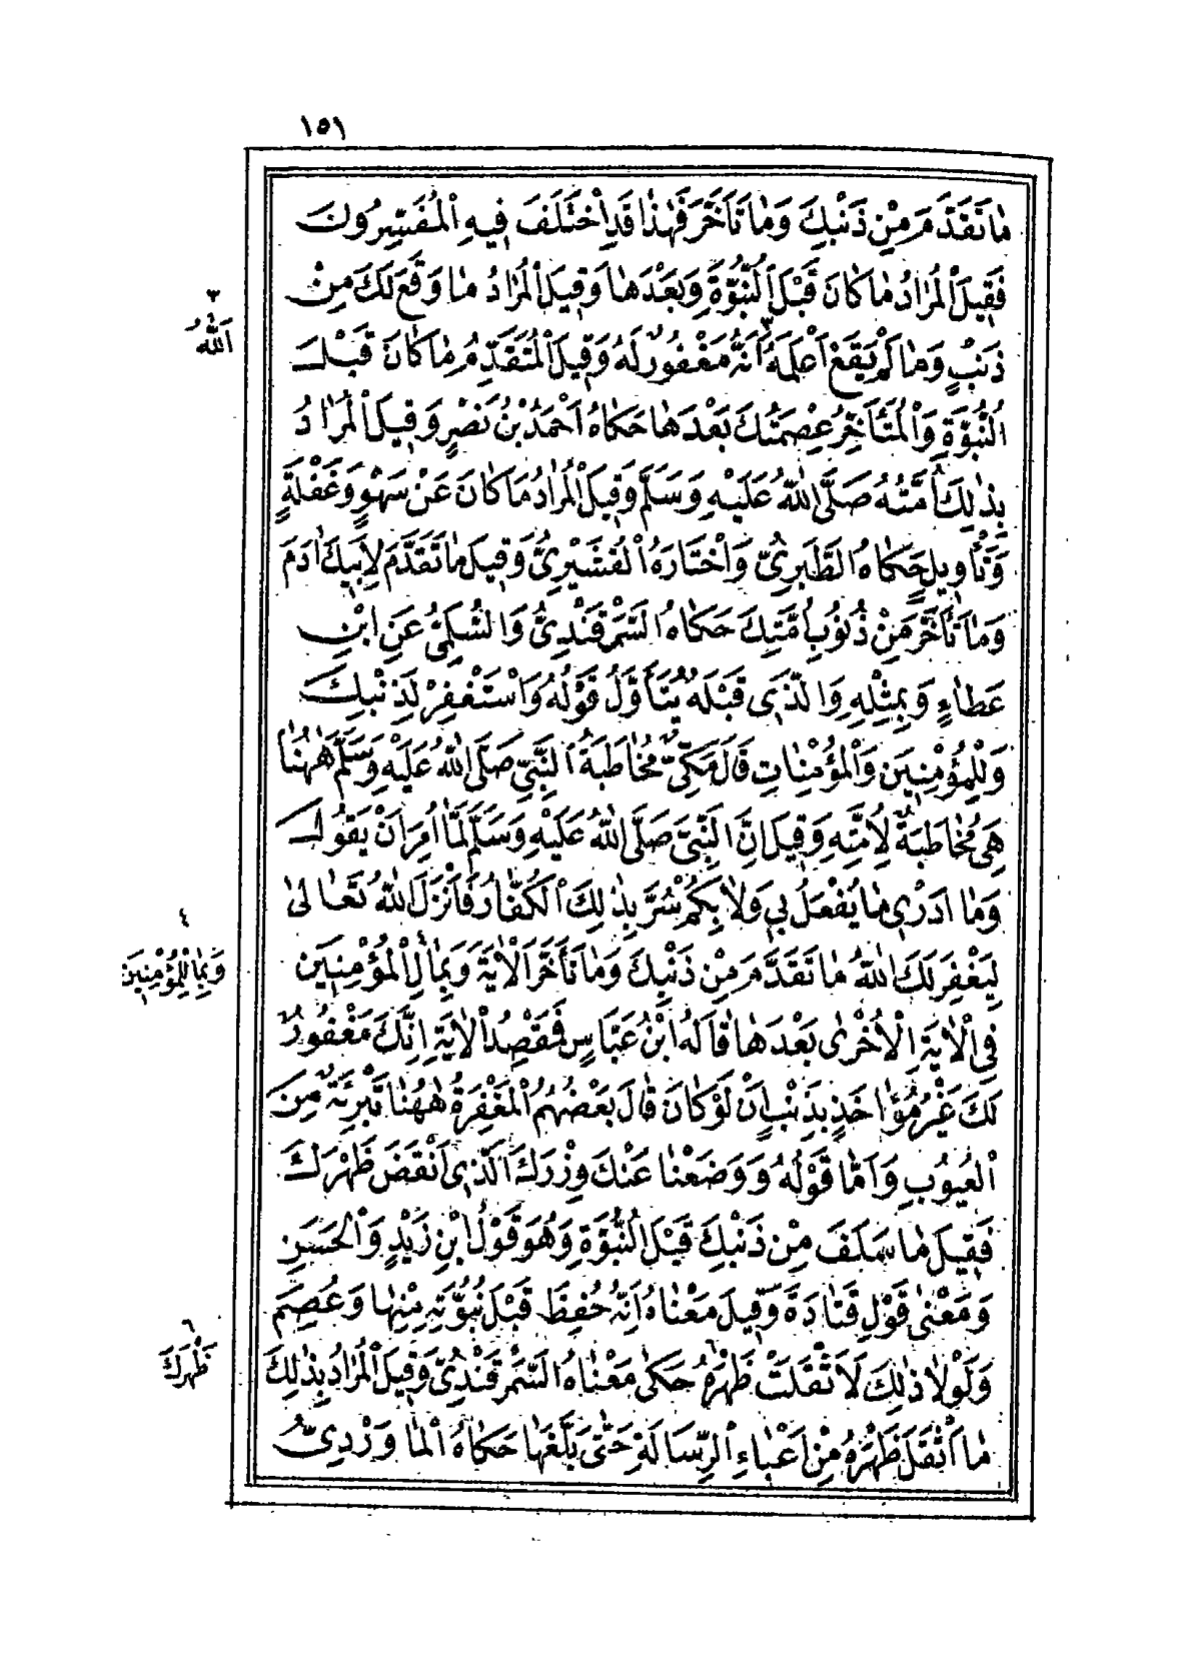 ١٥١
مَا تَقَدَّمَ مِنْ ذَنْبِكَ وَمَا تَأَخَّرَ فَهٰذَا قَدِ اخْتَلَفَ فِيهِ الْمُفَسِّرُونَ
فَقِيلَ الْمُرَادُ مَا كَانَ قَبْلَ النُّبُوَّةِ وَبَعْدَهَا وَقِيلَ الْمُرَادُ مَا وَقَعَ لَكَ مِنْ
ذَنْبٍ وَمَا لَمْ يَقَعْ اَعْلَمَهُ ٣ اَنَّهُ مَغْفُورٌ لَهُ وَقِيلَ الْمُتَقَدِّمُ مَا كَانَ قَبْلَ
النُّبُوَّةِ وَالْمُتَأَخِّرُ عِصْمَتُكَ بَعْدَهَا حَكَاهُ اَحْمَدُ بْنُ نَصْرٍ وَقِيلَ الْمُرَادُ
بِذٰلِكَ اُمَّتُهُ صَلَّى اللهُ عَلَيْهِ وَسَلَّمَ وَقِيلَ الْمُرَادُ مَا كَانَ عَنْ سَهْوٍ وَغَفْلَةٍ
وَتَأْوِيلٍ حَكَاهُ الطَّبَرِىُّ وَاخْتَارَهُ الْقُشَيْرِىُّ وَقِيلَ مَا تَقَدَّمَ لِاَبِيكَ اٰدَمَ
وَمَا تَأَخَّرَ مِنْ ذُنُوبِ اُمَّتِكَ حَكَاهُ السَّمَرْقَنْدِىُّ وَالسُّلَمِىُّ عَنِ ابْنِ
عَطَاءٍ وَبِمِثْلِهِ وَالَّذِى قَبْلَهُ يُتَأَوَّلُ قَوْلُهُ وَاسْتَغْفِرْ لِذَنْبِكَ
وَلِلْمُؤْمِنِينَ وَالْمُؤْمِنَاتِ قَالَ مَكِّىٌّ مُخَاطَبَةُ النَّبِىِّ صَلَّى اللهُ عَلَيْهِ وَسَلَّمَ هٰهُنَا
هِىَ مُخَاطَبَةٌ لِاُمَّتِهِ وَقِيلَ اِنَّ النَّبِىَّ صَلَّى اللهُ عَلَيْهِ وَسَلَّمَ لَمَّا اُمِرَ اَنْ يَقُولَ
وَمَا اَدْرِى مَا يُفْعَلُ بِى وَلَا بِكُمْ سُرَّ بِذٰلِكَ الْكُفَّارُ فَاَنْزَلَ اللهُ تَعَالٰى
لِيَغْفِرَ لَكَ اللهُ مَا تَقَدَّمَ مِنْ ذَنْبِكَ وَمَا تَأَخَّرَ الْاٰيَةَ وَبِمَالِ ٤ الْمُؤْمِنِينَ
فِى الْاٰيَةِ الْاُخْرٰى بَعْدَهَا قَالَهُ ابْنُ عَبَّاسٍ فَمَقْصِدُ الْاٰيَةِ اِنَّكَ مَغْفُورٌ
لَكَ غَيْرُ مُؤَاخَذٍ بِذَنْبٍ اَنْ لَوْ كَانَ قَالَ بَعْضُهُمْ الْمَغْفِرَةُ هٰهُنَا تَبْرِئَةٌ مِنَ
الْعُيُوبِ وَاَمَّا قَوْلُهُ وَوَضَعْنَا عَنْكَ وِزْرَكَ الَّذِى اَنْقَضَ ظَهْرَكَ
فَقِيلَ مَا سَلَفَ مِنْ ذَنْبِكَ قَبْلَ النُّبُوَّةِ وَهُوَ قَوْلُ ابْنِ زَيْدٍ وَالْحَسَنِ
وَمَعْنٰى قَوْلِ قَتَادَةَ وَقِيلَ مَعْنَاهُ اَنَّهُ حُفِظَ قَبْلَ نُبُوَّتِهِ مِنْهَا وَعُصِمَ
وَلَوْلَا ذٰلِكَ لَاَثْقَلَتْ ظَهْرَهُ ٦ حَكٰى مَعْنَاهُ السَّمَرْقَنْدِىُّ وَقِيلَ الْمُرَادُ بِذٰلِكَ
مَا اَثْقَلَ ظَهْرَهُ مِنْ اَعْبَاءِ الرِّسَالَةِ حَتّٰى بَلَّغَهَا حَكَاهُ الْمَاوَرْدِىُّ
٣
اَللهُ
٤
وَبِمَا لِلْمُؤْمِنِينَ
٦
ظَهْرَكَ